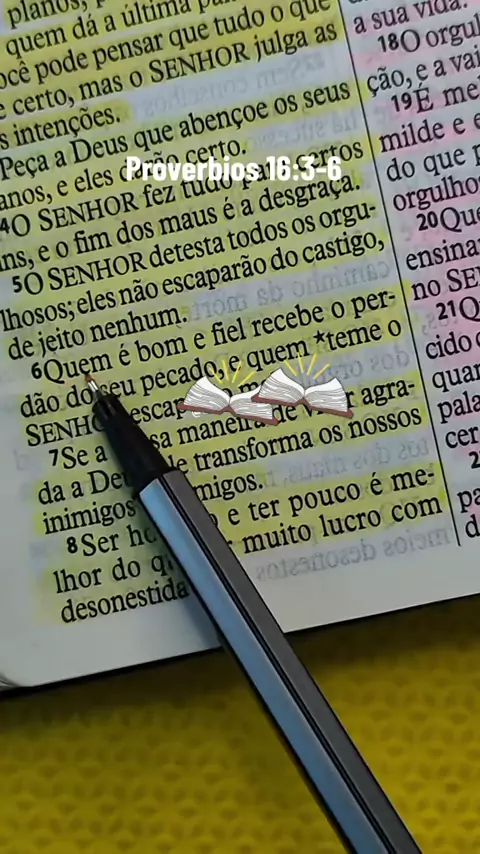 planos,
quem dá a última
ocê pode pensar que tudo o que
certo, mas o SENHOR julga as
s intenções.
Peça a Deus que abençoe os seus
anos, e eles darão certo.
Proverbios 16:3-6
4O SENHOR fez tudo para certos
ns, e o fim dos maus é a desgraça.
5O SENHOR detesta todos os orgu-
lhosos; eles não escaparão do castigo,
de jeito nenhum.
6Quem é bom e fiel recebe o per-
dão do seu pecado, e quem *teme o
SENHOR escapa
7Se a nossa maneira de viver agra-
da a Deus, ele transforma os nossos
inimigos migos.
8Ser ho e ter pouco é me-
lhor do q muito lucro com
desonestida
a sua vida.
18O orgul
ção, e a vai
19É mel
milde e e
do que p
orgulho
20Que
ensina
no SE
21Q
cido
quar
pala
cer
2
pa
d